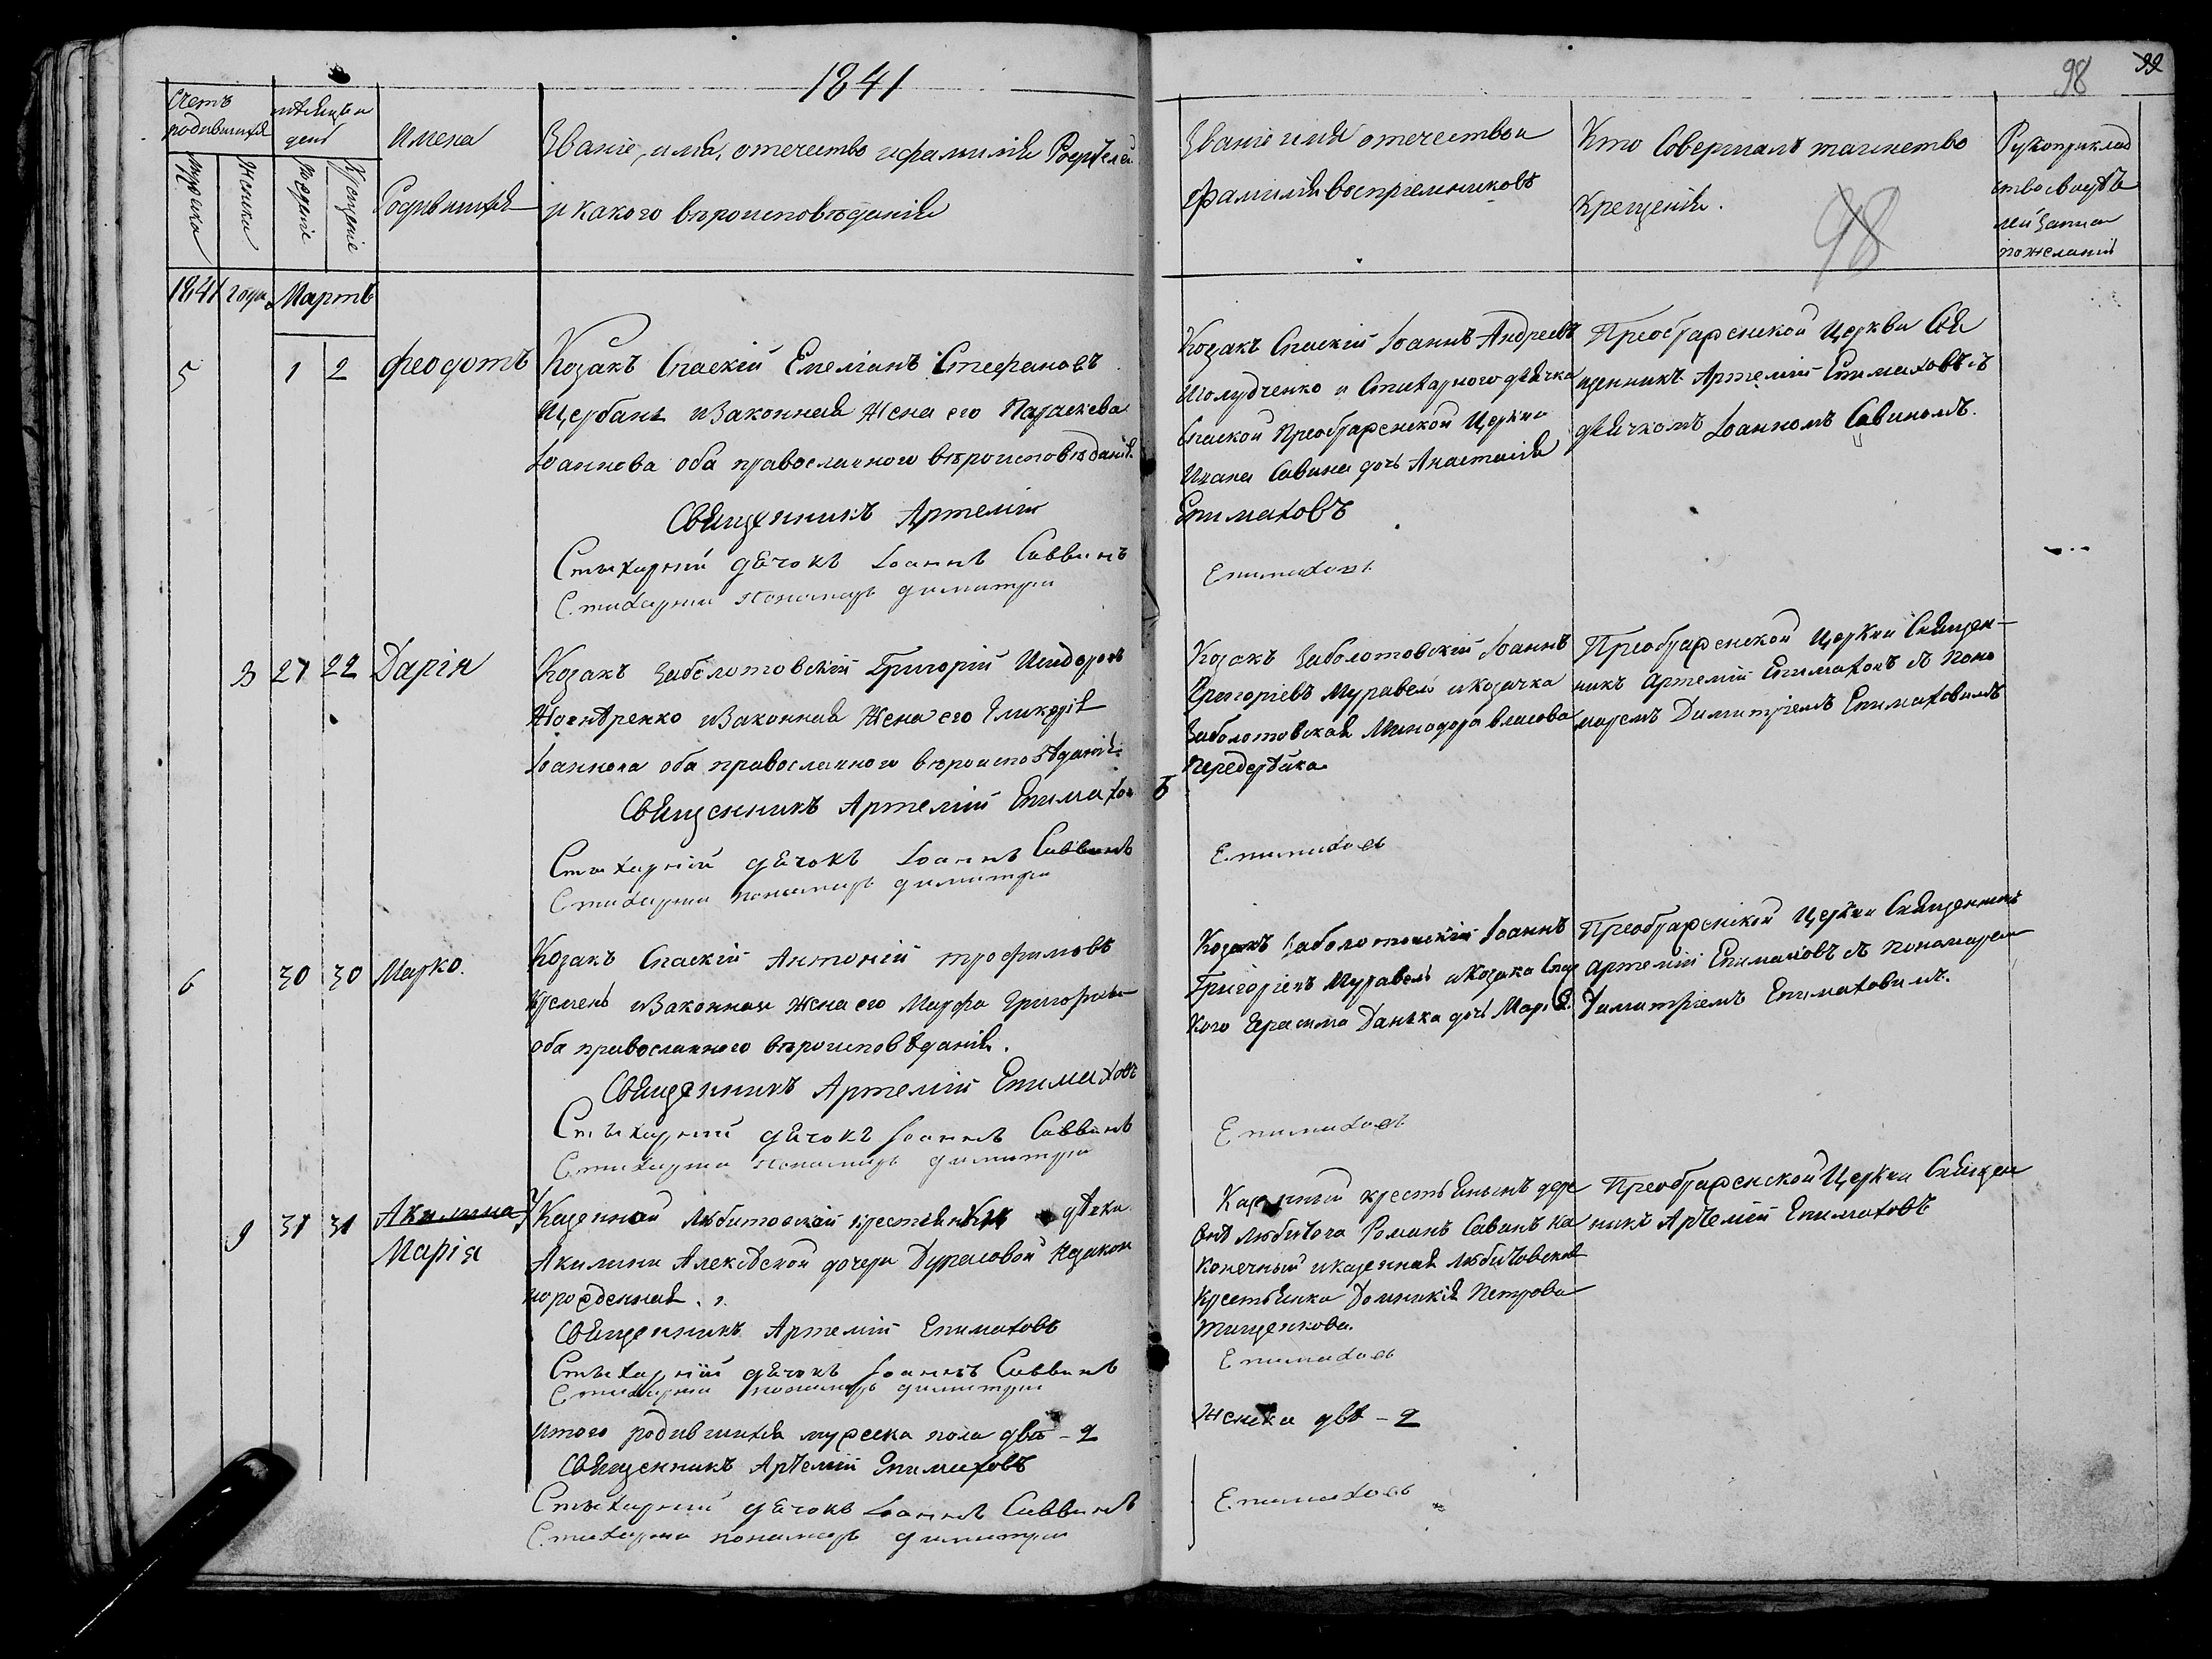 1841
98 99
Счетъ родившихся
мѣсяцъ и день
Имена Родившихся
Званіе, имя, отечество и фамилія Родителей
и какого вѣроисповѣданія
Мужска
Женска
рожденіе
Крещеніе
Званіе имя отечество и
фамилія воспріемниковъ
Кто Совершалъ таинство
Крещенія.
98
Рукоприклад
ство свидѣте
лей записи
по желанію
1841 года Мартъ
5 1 2 Феодотъ
Козакъ Спаскій Емеліанъ Стефановъ
Щербань и Законная Жена его Параскева
Іоаннова оба православного вѣроисповѣданія.
Священникъ Артемій
Стихарный дячокъ Іоаннъ Саввинъ
Стихарный пономарь димитрій
Козакъ Спаскій Іоаннъ Андреевъ
Шолудченко и Стихарного дячка
Спаской Преображенской Церкви
Ивана Савина дочь Анастасія
Епимаховъ
Епимаховъ
Преображенской Церкви Свя
щенникъ Артемій Епимаховъ съ
дячкомъ Іоанномъ Савиномъ.
3 21 22 Дарія
Козакъ Заболотовскій Григорій Исидоровъ
и Законная Жена его Гликерія
Іоаннова оба православного вѣроисповѣданія.
Священникъ Артемій Епимаховъ
Стихарный дячокъ Іоаннъ Саввинъ
Стихарный пономарь димитрій
Козакъ Заболотовскій Іоаннъ
Григоріевъ Муравель и козачка
Заболотовская Минодора власова
Епимаховъ
Преображенской Церкви Священ-
никъ Артемій Епимаховъ съ Поно
маремъ Димитріемъ Епимаховимъ
6 30 30 Марко.
Козакъ Спаскій Антоній трофимовъ
Кремень и Законная Жена его Марфа Григорьева
оба православного вѣроисповѣданія.
Священникъ Артемій Епимаховъ
Стихарный дячокъ Іоаннъ Саввинъ
Стихарный пономарь димитрій
Козакъ Заболотовскій Іоаннъ
Григоріевъ Муравель и Козака Спас
кого Герасима Данька дочь Марія.
Епимаховъ
Преображенской Церкви Священникъ
Артемій Епимаховъ съ Пономаремъ
Димитріемъ Епимаховимъ.
9 31 31 Акилина
Марія
Казенной Любитовской крестянки дѣвки
Акилини Алексѣевой дочери Дурасовой Незакон
норожденная.
Священникъ Артемій Епимаховъ
Стихарный дячокъ Іоаннъ Саввинъ
Стихарный пономарь димитрій
Казенный крестьянинъ дере
внѣ Любитова Романъ Савинъ На
Конечный и казенная Любитовская
Крестьянка Домникія Петрова
Тищенкова.
Епимаховъ
Преображенской Церкви Священ
никъ Артемій Епимаховъ
итого родившихся мужеска пола два - 2
Женска двѣ - 2
Священникъ Артемій Епимаховъ
Стихарный дячокъ Іоаннъ Саввинъ
Стихарный пономарь димитрій
Епимаховъ